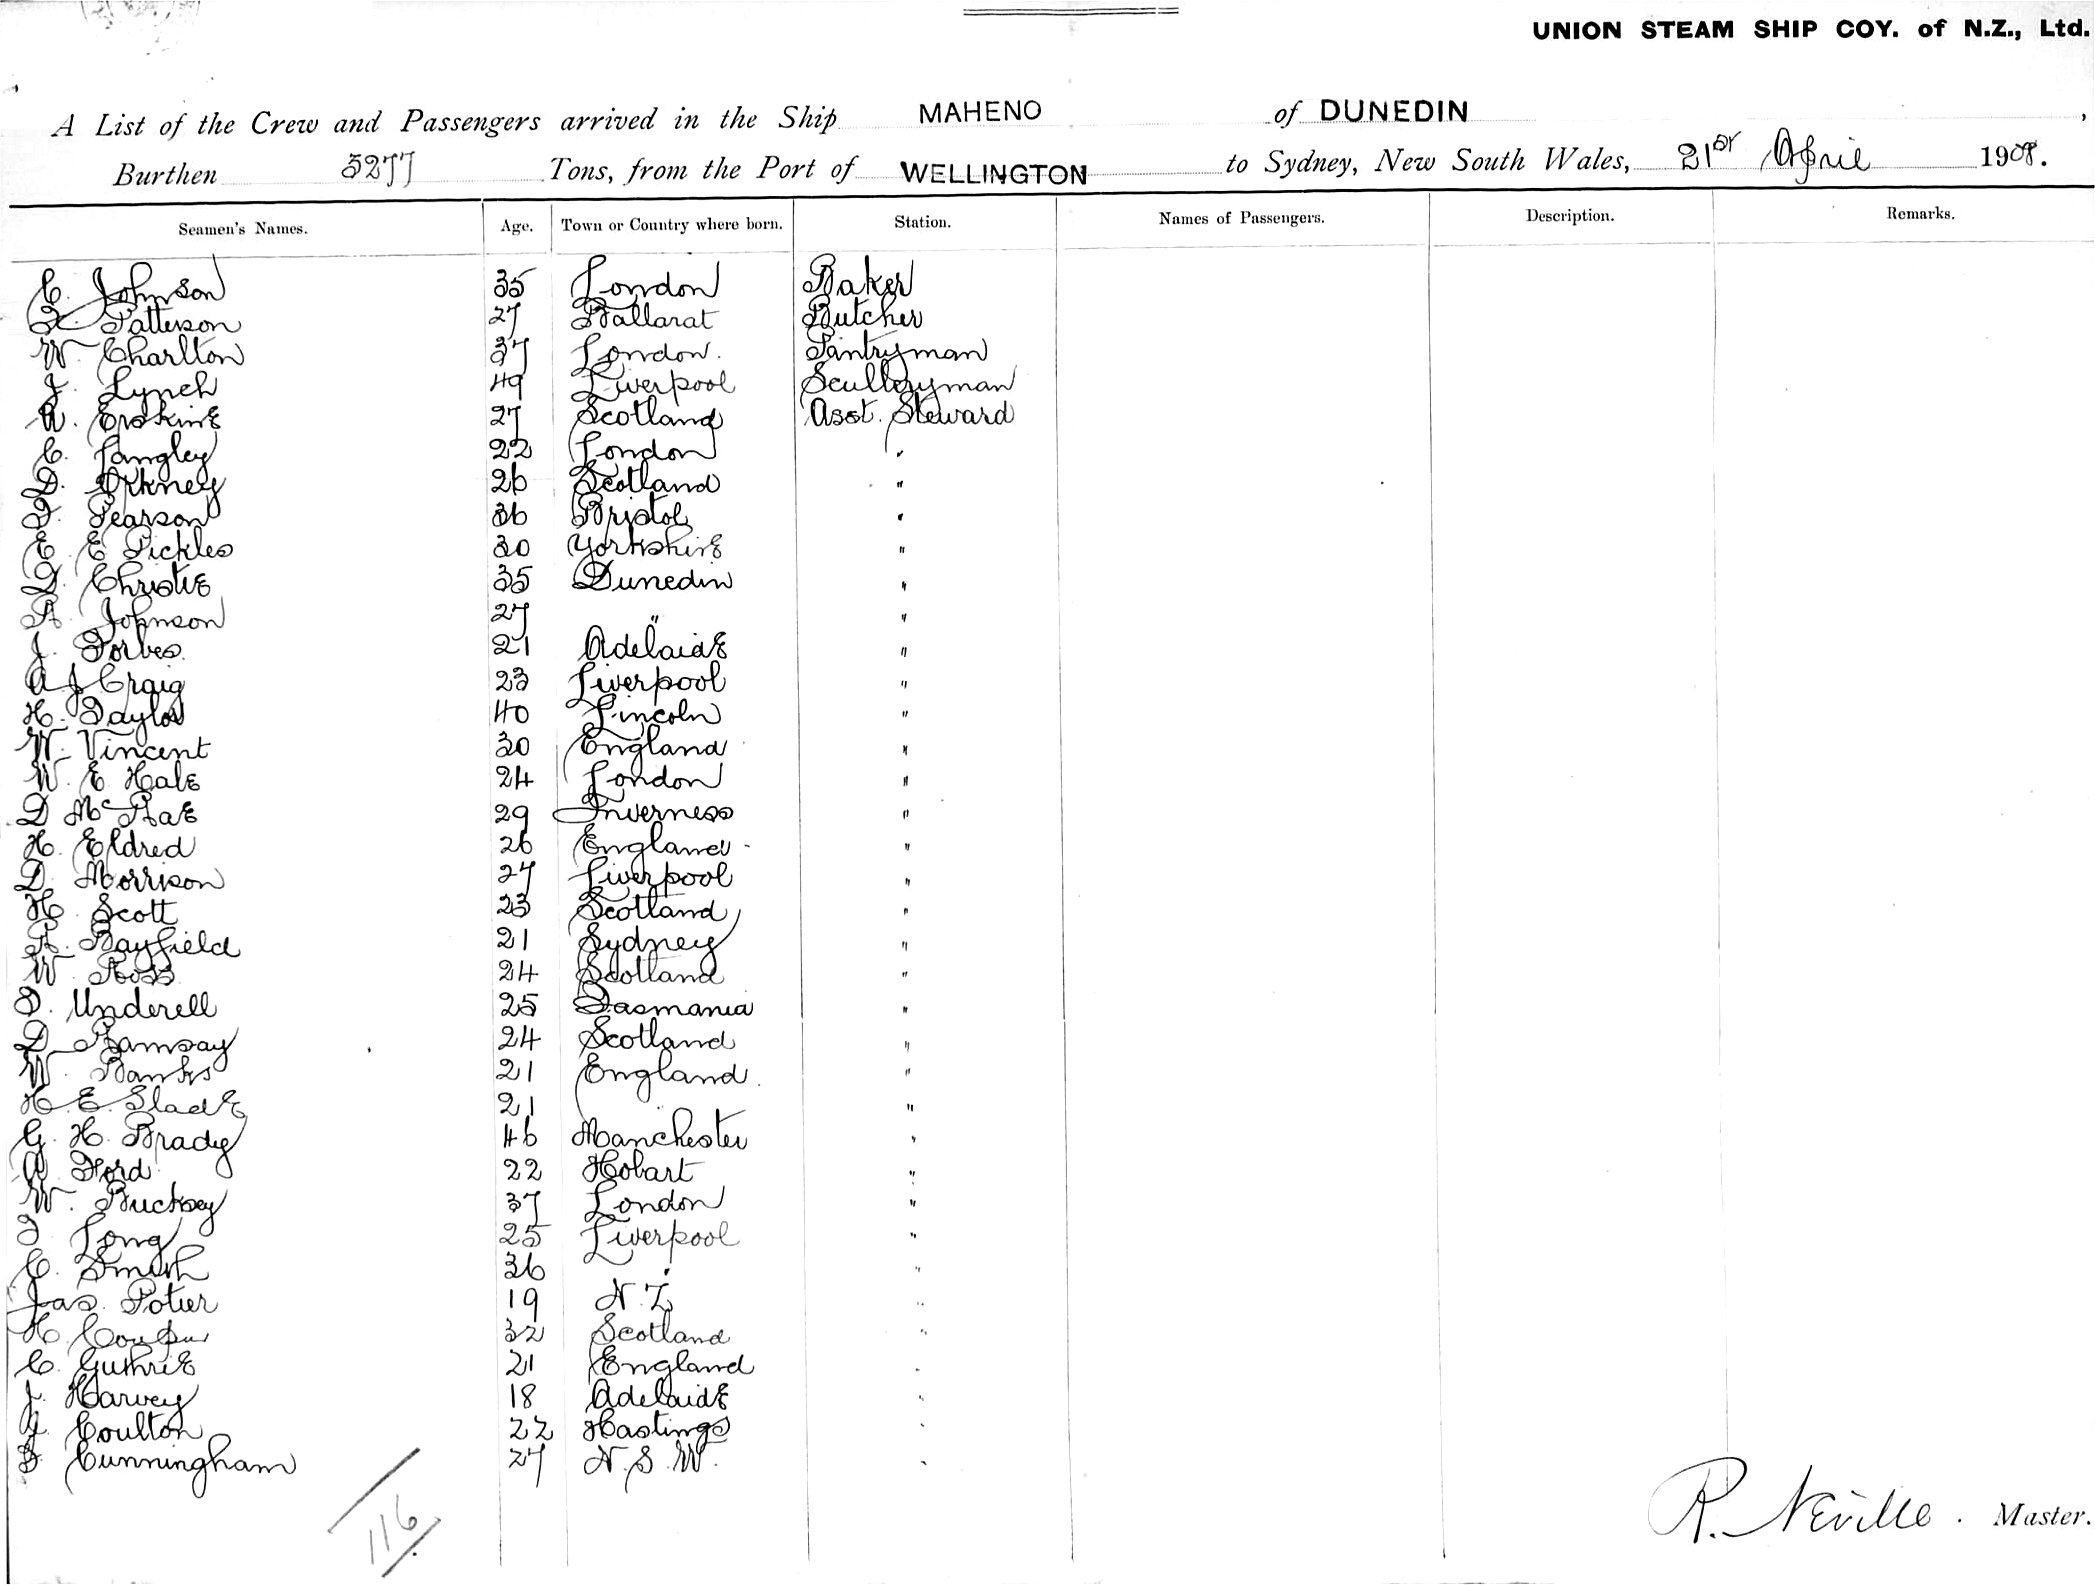 UNION STEAM SHIP COY. of N.Z., Ltd.
A List of the Crew and Passengers arrived in the Ship MAHENO of DUNEDIN,
Burthen 5277 Tons, from the Port of WELLINGTON to Sydney, New South Wales, 21st April 1908.
Seamen's Names. Age. Town or Country where born. Station. Names of Passengers. Description. Remarks.
C. Johnson 35 London Baker
Patterson 27 Ballarat Butcher
W. Charlton 37 London. Pantryman
J. Lynch 49 Liverpool Sculleryman
A. Erskine 27 Scotland Asst. Steward
C. Langley 22 London "
D. Orkney 26 Scotland "
F. Pearson 36 Bristol "
E. E Pickles 30 Yorkshire "
D. Christie 35 Dunedin "
A. Johnson 27 " "
J. Forbes. 21 Adelaide "
A J Craig 23 Liverpool "
H. Taylor 40 Lincoln "
W. Vincent 30 England "
W. E Hale 24 London "
D McRae 29 Inverness "
H. Eldred 26 England "
D. Morrison 27 Liverpool "
H. Scott 23 Scotland "
A. Bayfield 21 Sydney "
W Ross 24 Scotland "
Underell 25 Tasmania "
D Ramsay 24 Scotland "
W. Banks 21 England "
H. E. Slade 21 "
G. H. Brady 46 Manchester "
A Ford 22 Hobart "
W. Bucksey 37 London "
Long 25 Liverpool "
C. Smith 36 " "
Jas. Potier 19 N.Z. "
H. Couper 32 Scotland "
C. Guthrie 21 England "
J. Harvey 18 Adelaide "
Coulton 22 Hastings "
Cunningham 27 N.S.W. "
116
R. Neville. Master.